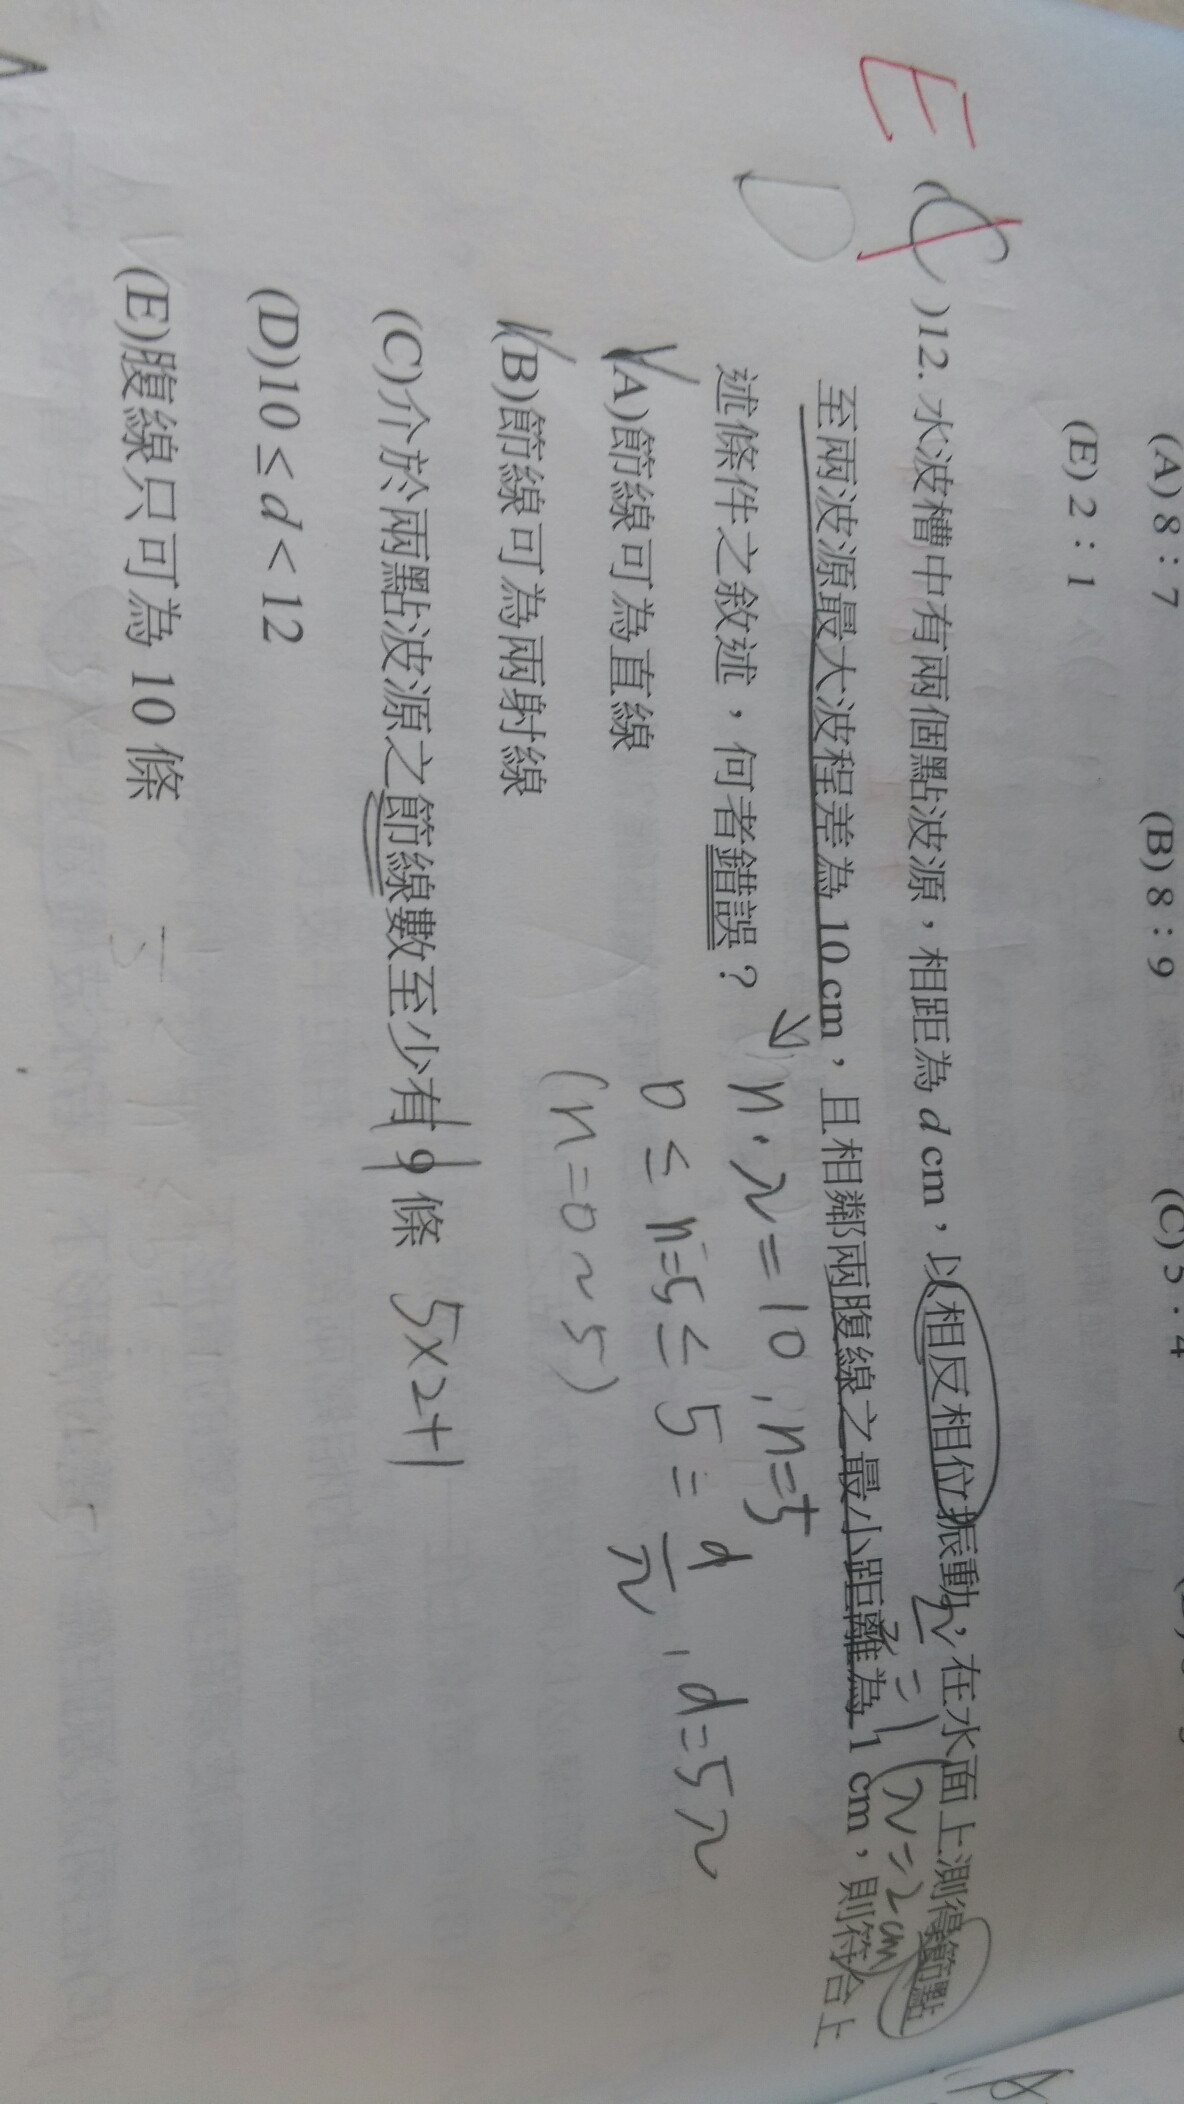 (A) 8：7
(B) 8：9
(C) 5：4
(E) 2：1
E
( C )12. 水波槽中有兩個點波源，相距為 d cm，以相反相位振動，在水面上測得節點
λ/2 = 1, λ=2cm
至兩波源最大波程差為 10 cm，且相鄰兩腹線之最小距離為 1 cm，則符合上
D
述條件之敘述，何者錯誤？
n·λ=10, n=5
(A)節線可為直線
0 ≤ n=5 ≤ 5 = d/λ, d=5λ
(B)節線可為兩射線
(n=0~5)
(C)介於兩點波源之節線數至少有 9 條
5×2+1
(D)10 ≤ d < 12
(E)腹線只可為 10 條